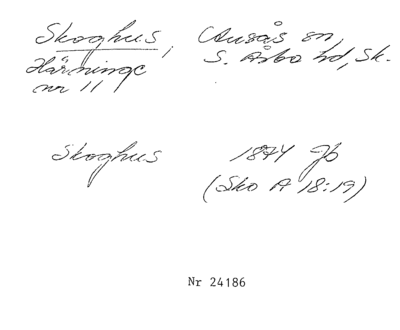 Skoghus, Ausås sn,
Härninge S. Åsbo hd, Sk.
nr 11
Skoghus 1874 Jb
(Sko A 18:19)
Nr 24186